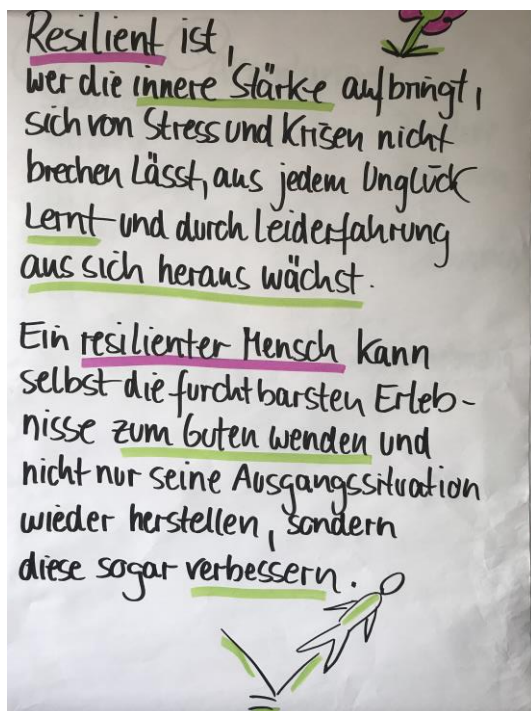 Resilient ist,
wer die innere Stärke aufbringt,
sich von Stress und Krisen nicht
brechen lässt, aus jedem Unglück
lernt und durch Leiderfahrung
aus sich heraus wächst.
Ein resilienter Mensch kann
selbst die furchtbarsten Erleb-
nisse zum Guten wenden und
nicht nur seine Ausgangssituation
wieder herstellen, sondern
diese sogar verbessern.